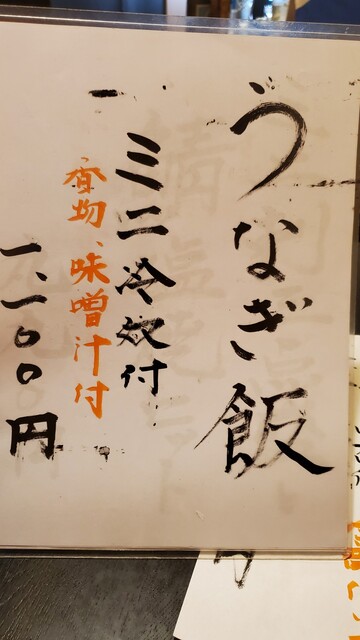 うなぎ飯
ミニ冷奴付
香物、味噌汁付
一、一〇〇円